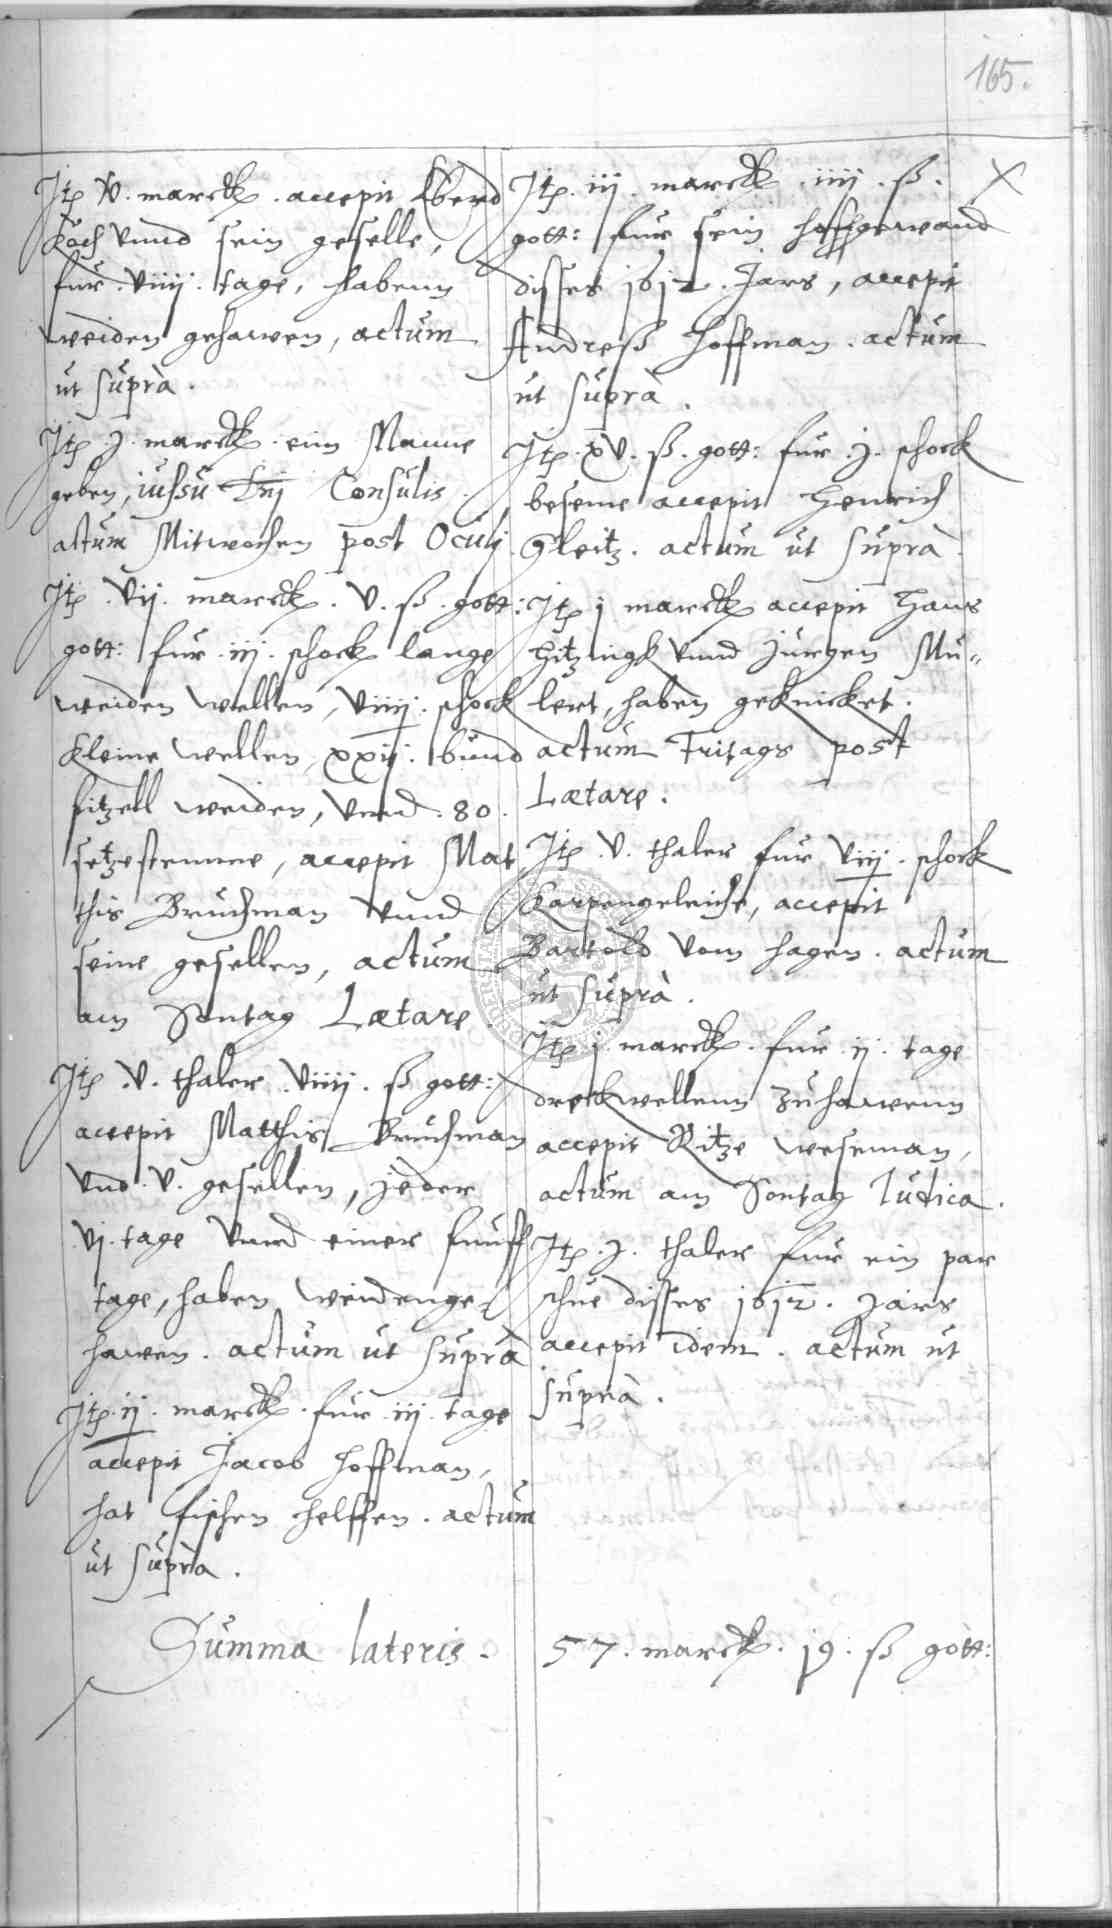 165.
Itē V. marck. accepit Eberd
Koch vnnd sein geselle,
fur. viiij. tage, habenn
weiden gehawen, actum
ut suprà.
Itē j. marck. eim Manne
geben, iussu Dnj Consulis.
actum Mitwochen post Oculj.
Itē. vij. marck. v. ß. gott:
gott: fur. iij. schock lange
weiden wellen, viiij. schock
kleine wellen, xxij. bund
fitzell weiden, vnnd. 80.
setzestemme, accepit Mat
this Bruchman vnnd
seine gesellen, actum
am Sontag Lætare
Itē. v. thaler. viiij. ß gott:
accepit Matthis Bruchman
vnd. v. gesellen, jeder
vj. tage vnnd einer funff
tage, haben weidenge-
hawen. actum ut suprà
Itē. ij. marck. fur. iij. tage
accepit Jacob Hoffman,
hat fischen helffen. actum
ut suprà.
Itē. iij. marck. iiij. ß.
gott: fur sein hoffgewand
disses 1612. Jars, accepit
Andreß Hoffman. actum
ut suprà.
Itē. xv. ß. gott: fur. j. schock
beseme accepit Henrich
Gleitz. actum ut suprà.
Itē j marck accepit Hans
Hitzingk vnnd Jurgen Mu-
lert, haben geknicket.
actum Fritags post
Lætare.
Itē. v. thaler fur viiij. schock
Karpengeleiche, accepit
Bartold vom Hagen. actum
ut suprà.
Itē j. marck. fur. ij. tage
dreckwellenn zuhawenn
accepit Ritze weseman,
actum am Sontag Iudica.
Itē. j. thaler fur ein par
schue disses 1612. Jars
accepit idem. actum ut
suprà.
Summa lateris. 57. marck. 19. ß gott: